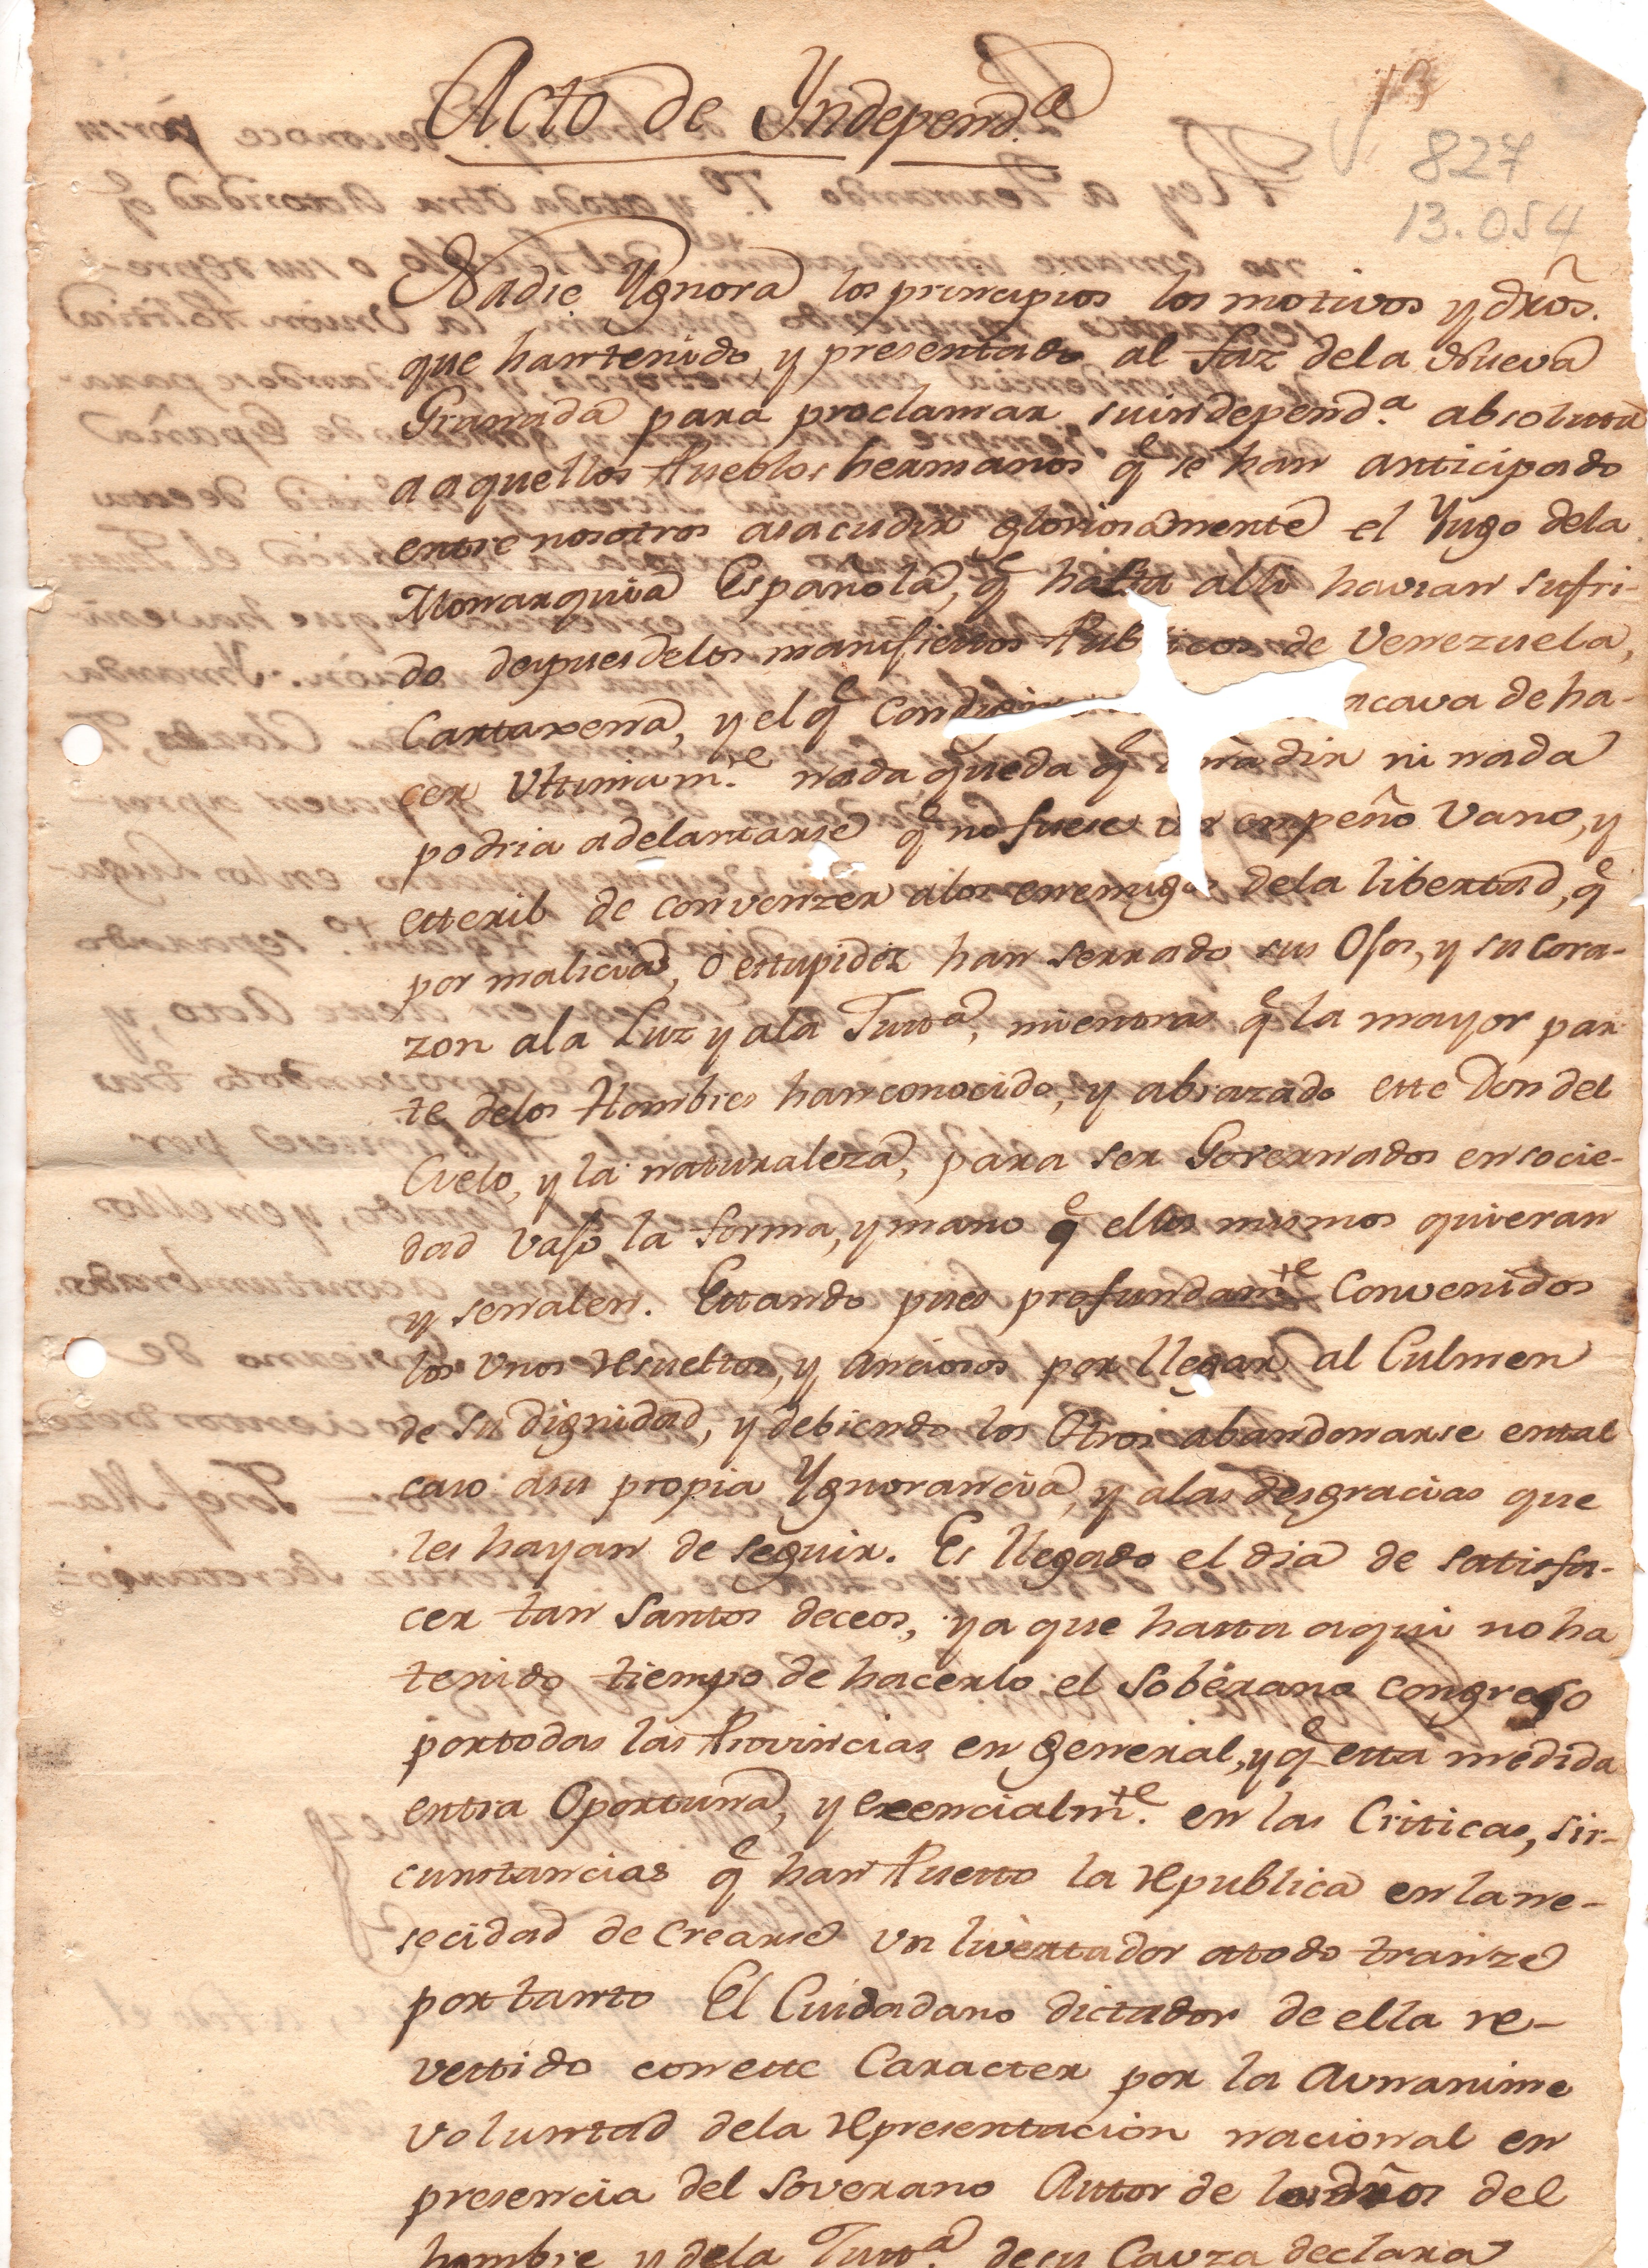 Acto de Yndepend.ª
13
827
13.054
Nadie Ygnora los principios los motivos y dr̃os.
que han tenido, y presentado al faz dela Nueva
Granada para proclamar su independ.ª absoluta
a aquellos Pueblos hermanos q̃ se han anticipado
entre nosotros asacudir gloriosamente el Yugo dela
Monarquia Española, q̃ hasta alli havian sufri-
do despues delos manifiestos Publicos de Venezuela,
Cartaxena, y el q̃ Cundin acava de ha-
cer Ultimam.te nada queda q̃ añadir ni nada
podria adelantarse q̃ no fuese un empeño Vano, y
esteril de convenzer alos enemigos dela libertad, q̃
por malicia, o estupidez han serrado sus Ojos, y su cora-
zon ala Luz y ala Justª, mientras q̃ la mayor par
te delos Hombres han conocido, y abrazado este Don del
Cielo, y la naturaleza, para ser Governados en socie-
dad vajo la forma, y mano q̃ ellos mismos quieran
y señalen. Estando pues profundam.te Convenidos
los Unos resueltos, y anciosos por llegar al Culmen
de su dignidad, y debiendo los Otros abandonarse ental
caso asu propia Ygnorancia, y alas desgracias que
les hayan de seguir. Es llegado el dia de satisfa-
cer tan Santos deceos, ya que hasta aqui no ha
tenido tiempo de hacerlo el Soberano Congreso
por todas las Provincias en general, y q̃ esta medida
entra Oportuna, y esencialm.te en las Criticas, sir-
cunstancias q̃ han Puesto la republica en la ne-
secidad de Crearse un livertador atodo tranze
por tanto El Ciudadano dictador de ella re-
vestido con este Caracter por la Aunanime
voluntad dela representacion nacional en
presencia del Soverano Autor de los dr̃os del
hombre y dela Justª. de su Cauza declara